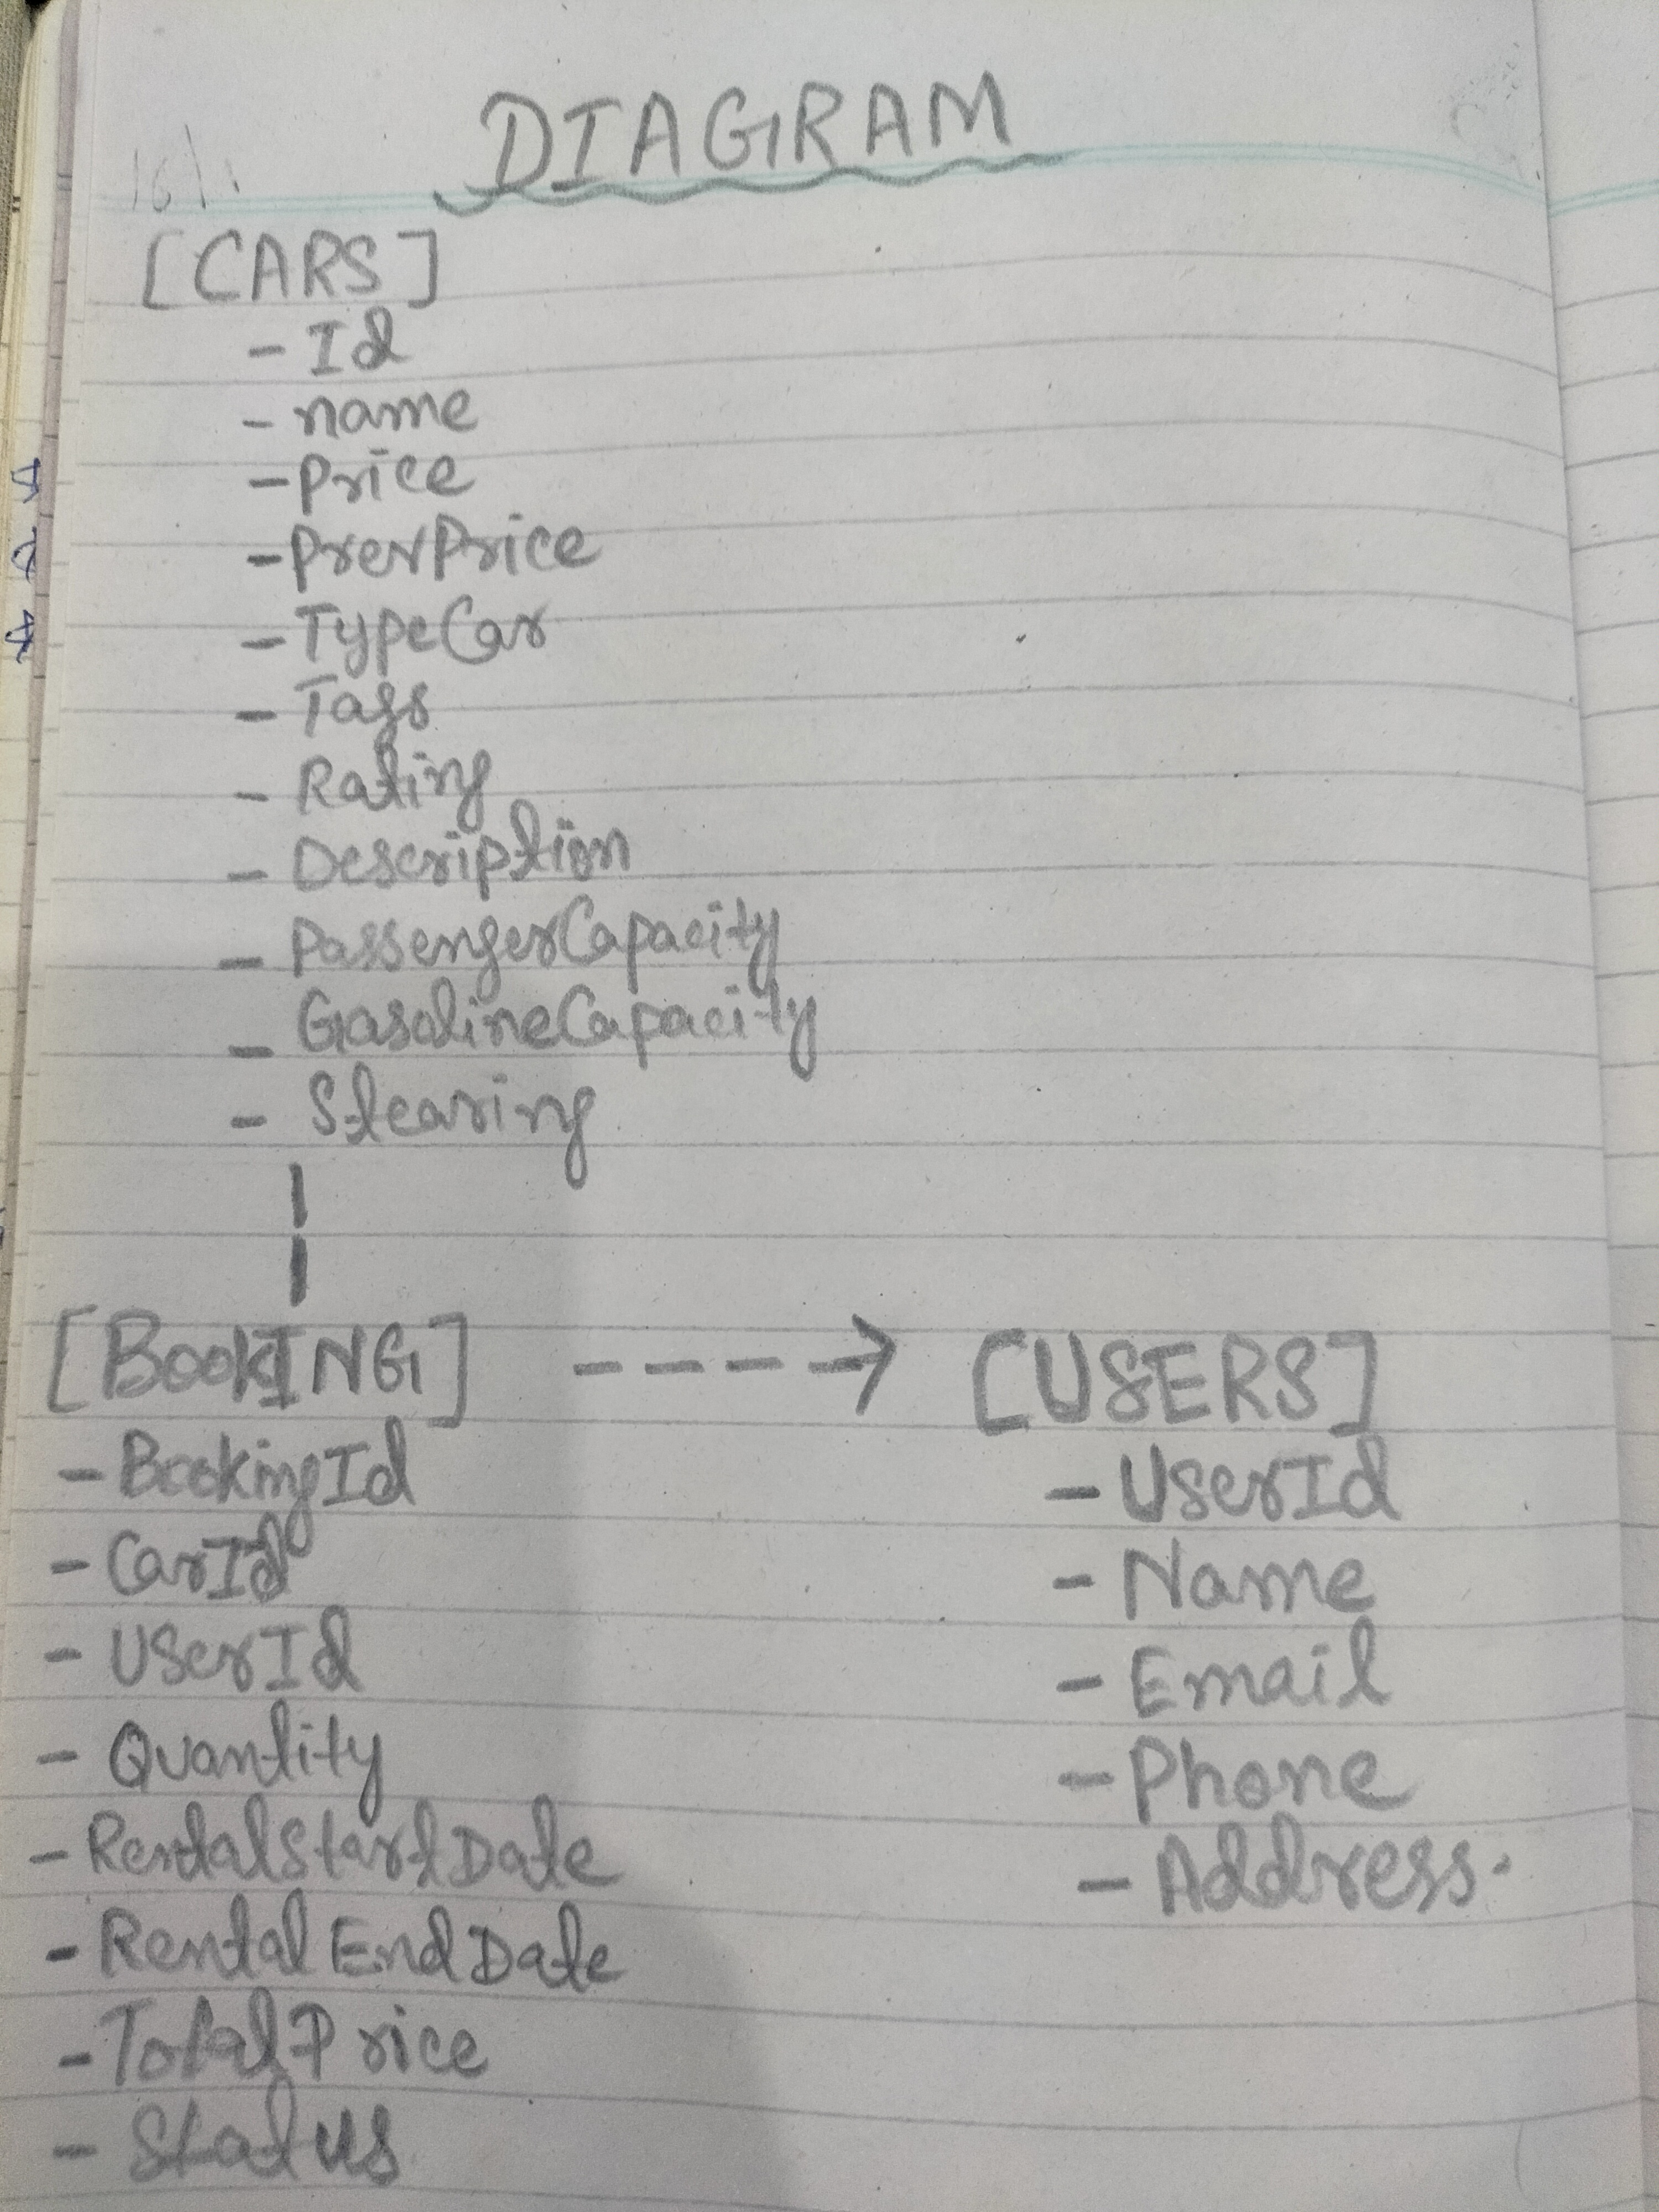 DIAGRAM
[CARS]
- Id
- name
- Price
- PrevPrice
- TypeCar
- Tags
- Rating
- Description
- PassengerCapacity
- GasolineCapacity
- Stearing
[BookING] ----> [USERS]
- BookingId
- CarId
- UserId
- Quantity
- RentalStartDate
- Rental End Date
- Total Price
- Status
- UserId
- Name
- Email
- Phone
- Address.